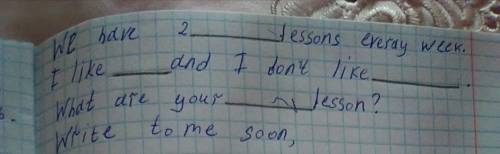 We have 2 ________ lessons everay week.
I like ______ and I don't like ________.
What are your ________ lesson?
Write to me soon,